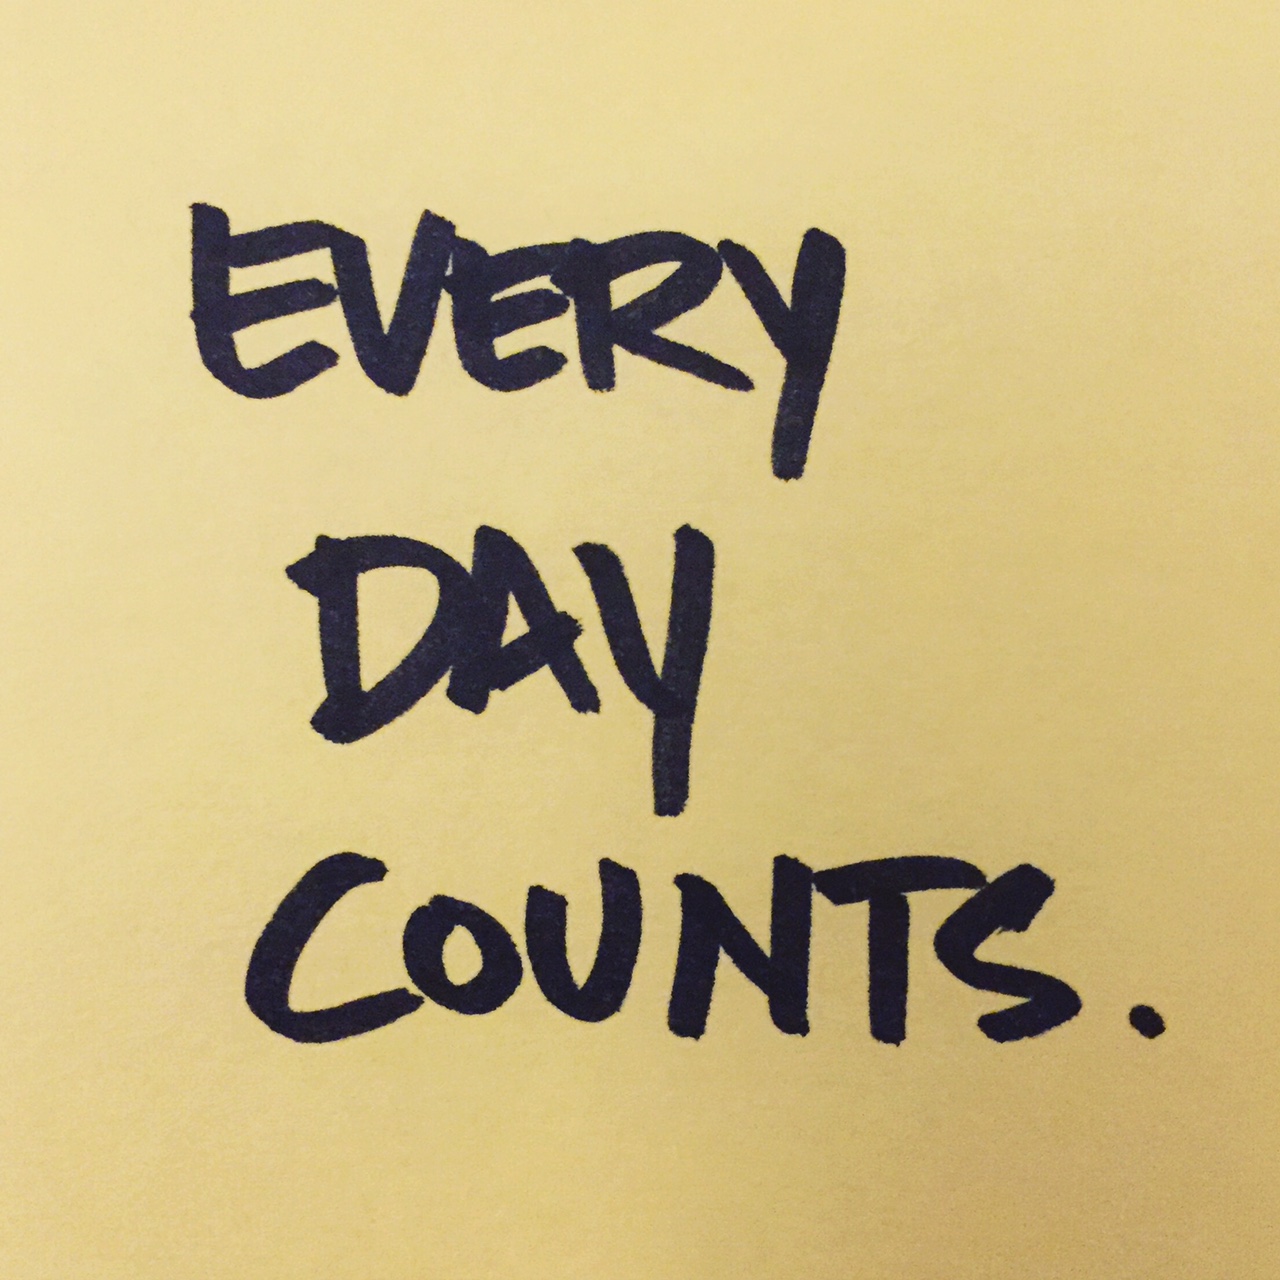 EVERY
DAY
COUNTS.